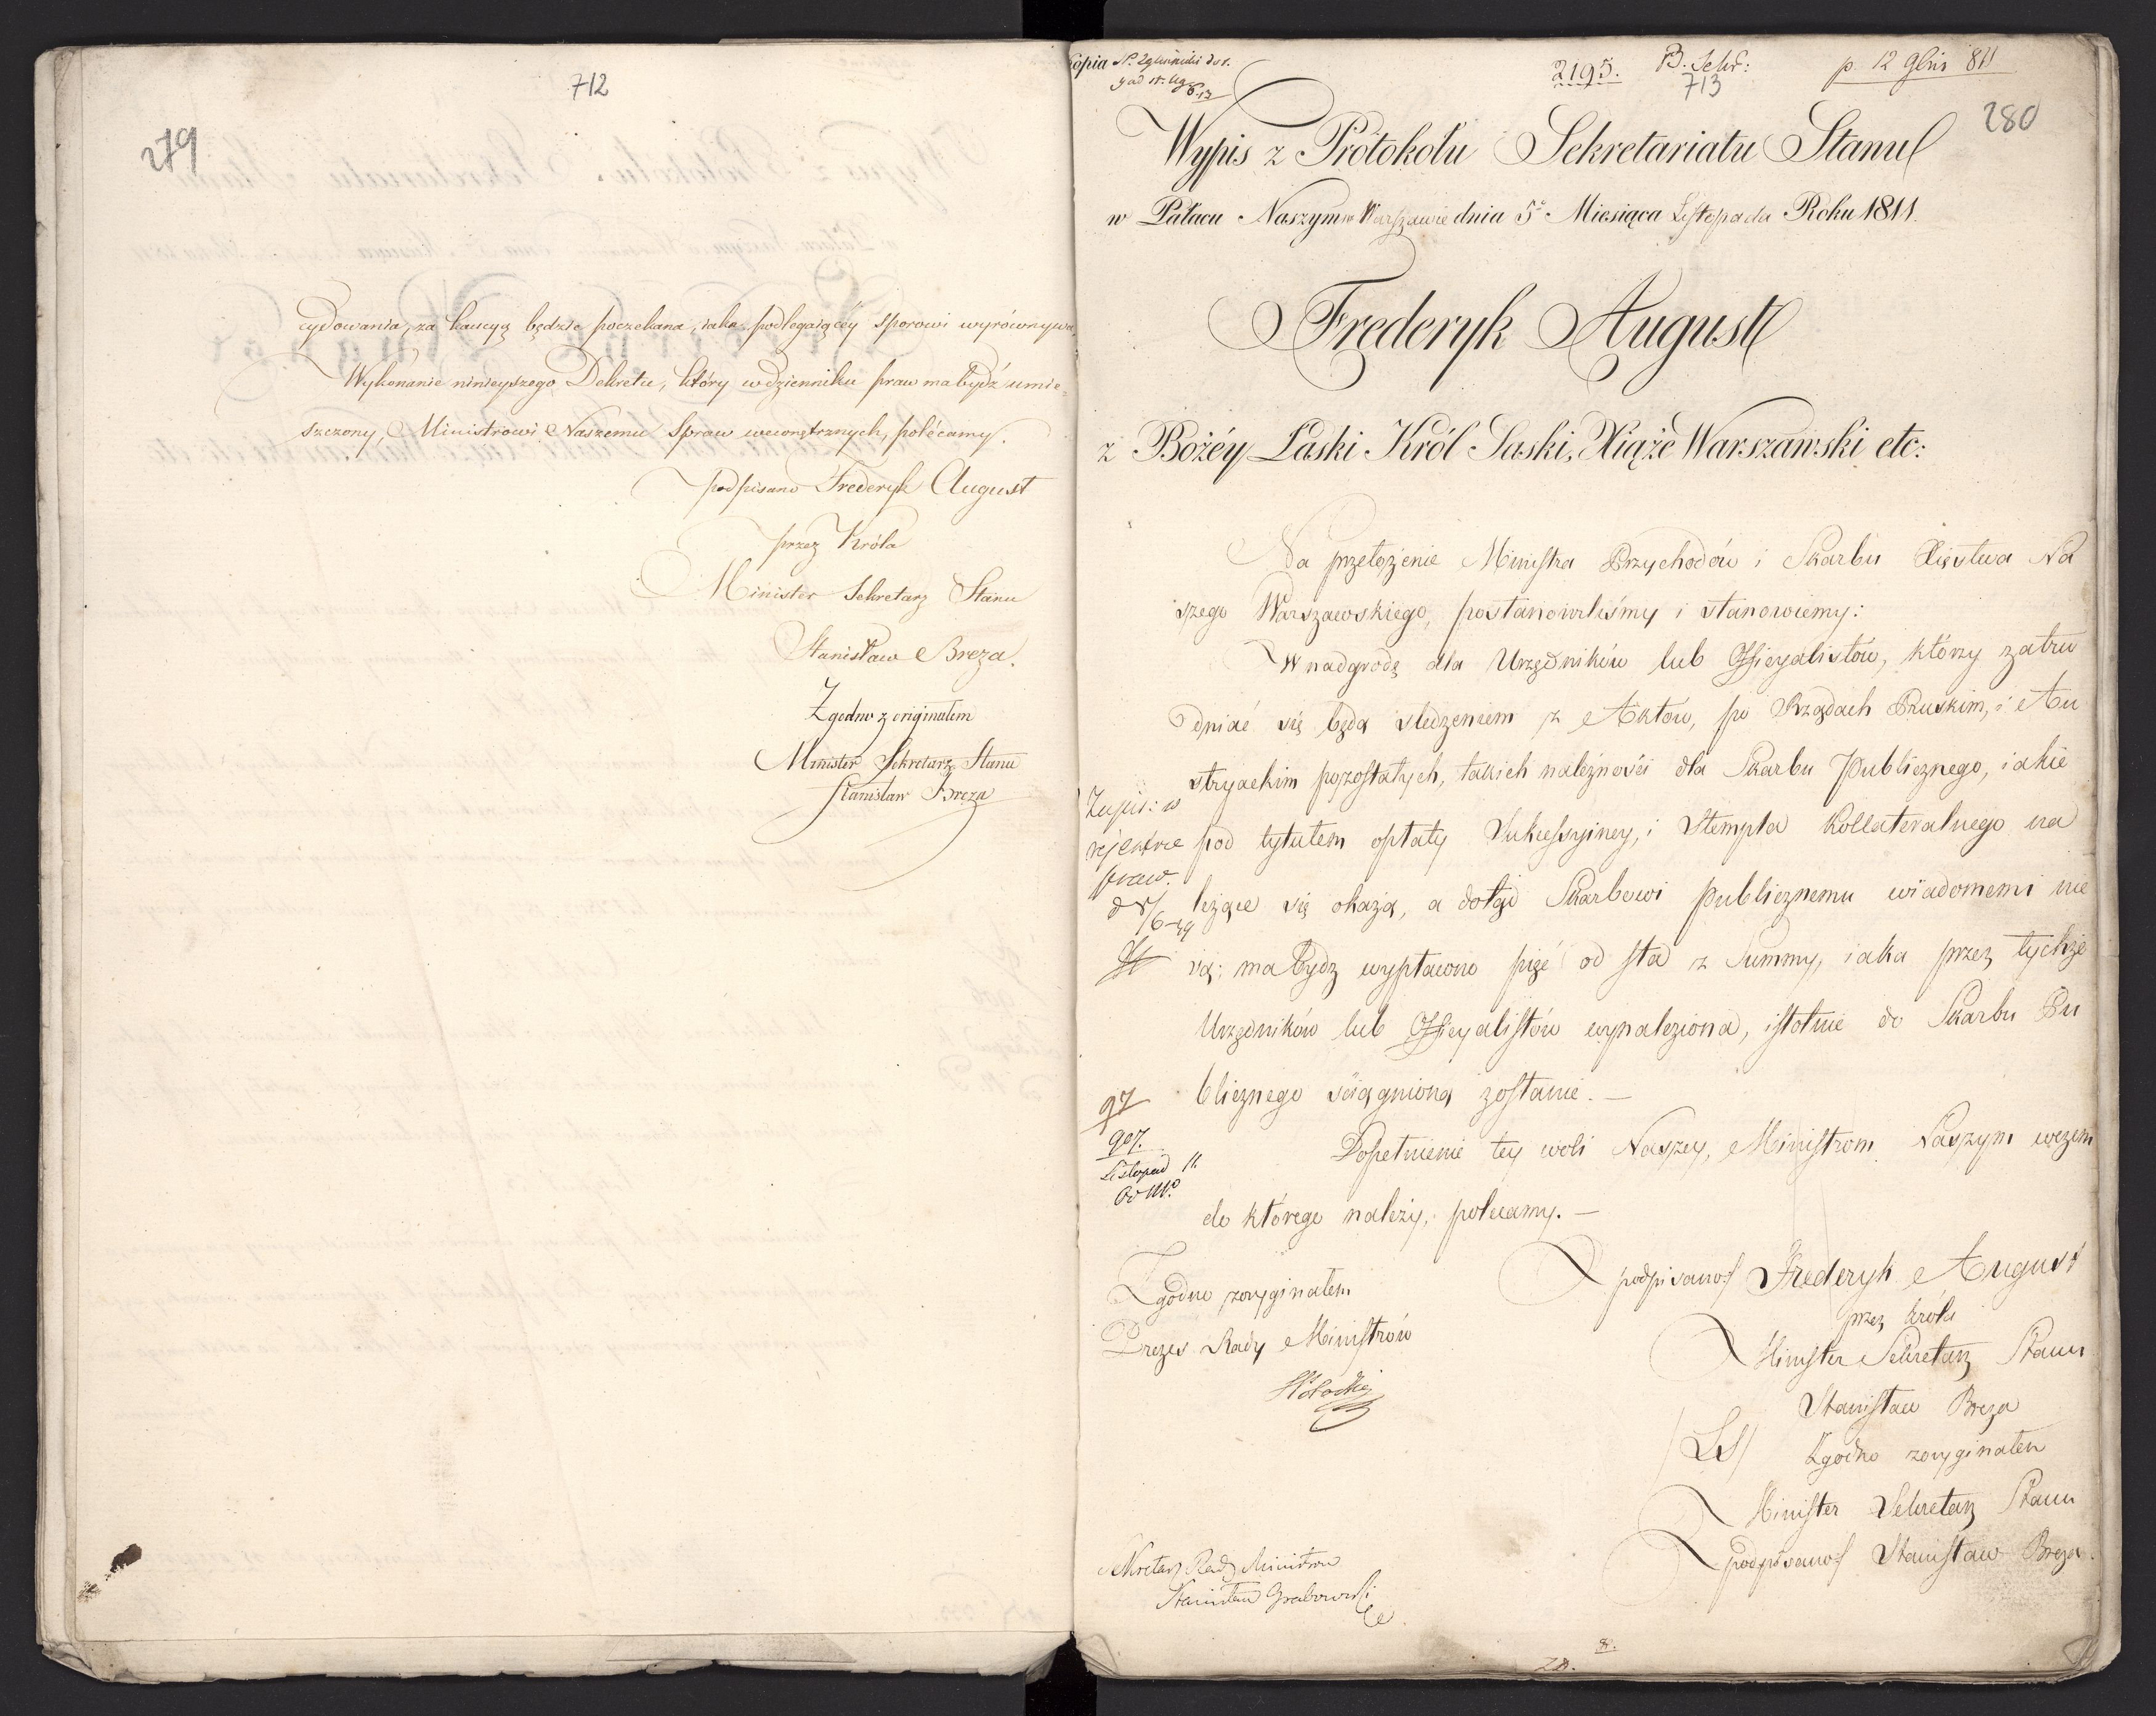 712
279
cydowania, za kaucyą będzie poczekana, iako podlegaiącéy sporowi wyrównywa.
Wykonanie ninieyszego Dekretu, który w dzienniku praw ma bydź umie-
szczony, Ministrowi Naszemu Spraw wewnętrznych, polécamy.
podpisano Frederyk August
przez Króla
Minister Sekretarz Stanu
Stanisław Breza.
Zgodno z originałem
Minister Sekretarz Stanu
Stanisław Breza
Kopia
2195. B. Sekr: p. 12 9bris 811
713
280
Wypis z Protokołu Sekretariatu Stanu
w Pałacu Naszym w Warszawie dnia 5º Miesiąca Listopada Roku 1811.
Frederyk August
z Bożéy Łaski Król Saski, Xiąże Warszawski etc:
Na przełożenie Ministra Przychodów i Skarbu Xięstwa Na
szego Warszawskiego, postanowiliśmy i stanowiemy:
W nadgrodę dla Urzędników lub Officyalistów, którzy zatru
dniać się będą śledzeniem z Aktów, po Rządach Pruskim, i Au
stryackim pozostałych, takich należności dla Skarbu Publicznego, iakie
pod tytułem opłaty Sukcessyiney, i Stempla Kollateralnego na
leżące się okażą, a dotąd Skarbowi publicznemu wiadomemi nie
są; ma bydz wypłacono pięć od sta z Summy, iaka przez tychże
Urzędników lub Officyalistów wynaleziona, istotnie do Skarbu Pu
blicznego ściągnioną zostanie. —
Dopełnienie tey woli Naszey, Ministrom Naszym wczem
do którego należy, polecamy. —
Zapis: w
rejestrze
praw.
97
907.
Listopad 11.
podpisano/ Frederyk August
przez Króla
Minister Sekretarz Stanu
Stanisław Breza
/LS/ Zgodno zoryginałem
Minister Sekretarz Stanu
podpisano/ Stanisław Breza.
Zgodno zoryginałem
Prezes Rady Ministrów
Sekretarz Rady Ministrów
Stanisław Grabowski